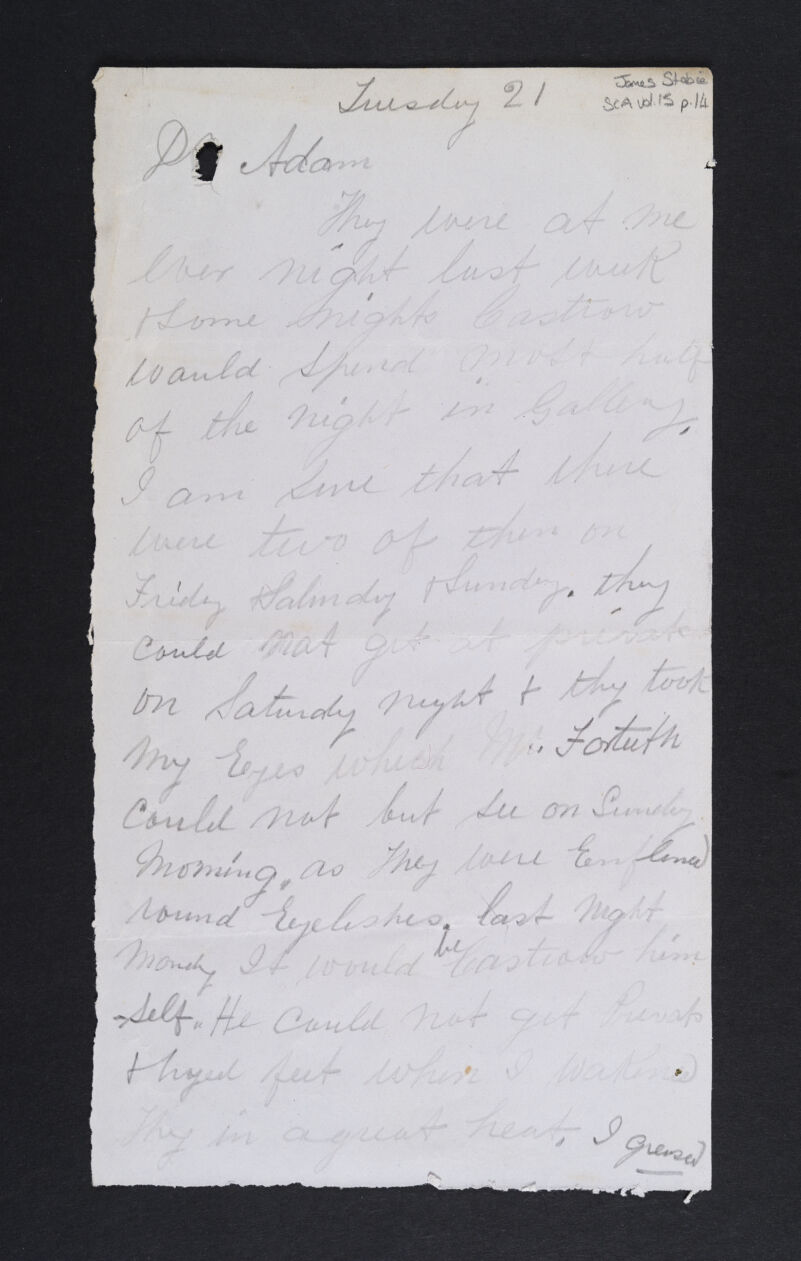 Tuesday 21
James Stobie
SCA vol.15 p.14
Dr Adam
They were at me
Ever night last week
& Some nights Castrow
would spend most half
of the night in Gallery.
I am sure that there
were two of them on
Fridy & Saturdy & Sunday. they
could not get at privats
on Saturdy night & thy took
My Eyes which Mr. Forteith
could not but see on Sunday
Morning. as They were Emflamed
round Eyelishes. last Night
Mondy It would be Castrow him
self. He could not get Privats
& feet when I wakened
They in a great heat. I greased